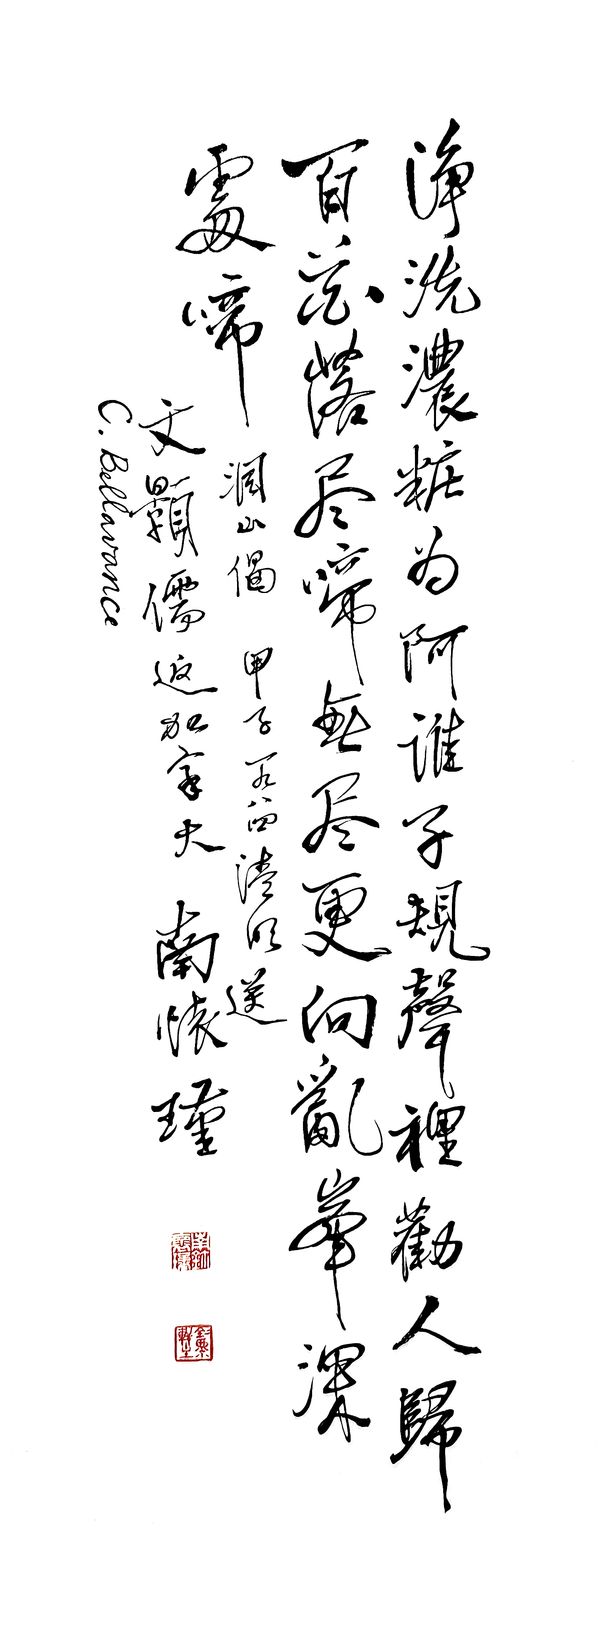 淨洗濃粧為阿誰子規聲裡勸人歸
百花落尽啼無尽更向亂峯深
處啼
洞山偈 甲子一九八四清明送
文顯儒返加拿大 南懷瑾
C. Bellavance